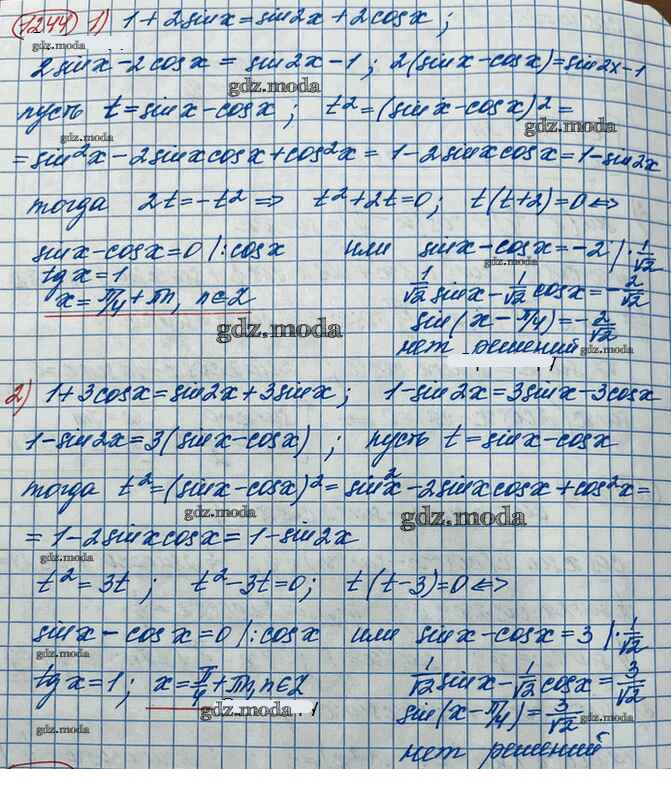 1244 1) 1 + 2sinx = sin2x + 2cosx ;
gdz.moda
2sinx - 2cosx = sin2x - 1 ; 2(sinx - cosx) = sin2x - 1
gdz.moda
пусть t = sinx - cosx ; t² = (sinx - cosx)² =
gdz.moda gdz.moda
= sin²x - 2sinxcosx + cos²x = 1 - 2sinxcosx = 1 - sin2x
тогда 2t = -t² ⇒ t² + 2t = 0; t(t+2) = 0 ⇔
sinx - cosx = 0 |:cosx или sinx - cosx = -2 |·1/√2
tgx = 1 1/√2 sinx - 1/√2 cosx = -2/√2
x = π/4 + πn, n∈Z sin(x - π/4) = -2/√2
gdz.moda
нет решений
gdz.moda
2) 1 + 3cosx = sin2x + 3sinx ; 1 - sin2x = 3sinx - 3cosx
1 - sin2x = 3(sinx - cosx) ; пусть t = sinx - cosx
тогда t² = (sinx - cosx)² = sin²x - 2sinxcosx + cos²x =
gdz.moda gdz.moda
= 1 - 2sinxcosx = 1 - sin2x
gdz.moda
t² = 3t ; t² - 3t = 0; t(t-3) = 0 ⇔
sinx - cosx = 0 |:cosx или sinx - cosx = 3 |·1/√2
gdz.moda
tgx = 1 ; x = π/4 + πn, n∈Z 1/√2 sinx - 1/√2 cosx = 3/√2
gdz.moda sin(x - π/4) = 3/√2 gdz.moda
gdz.moda
нет решений
gdz.moda